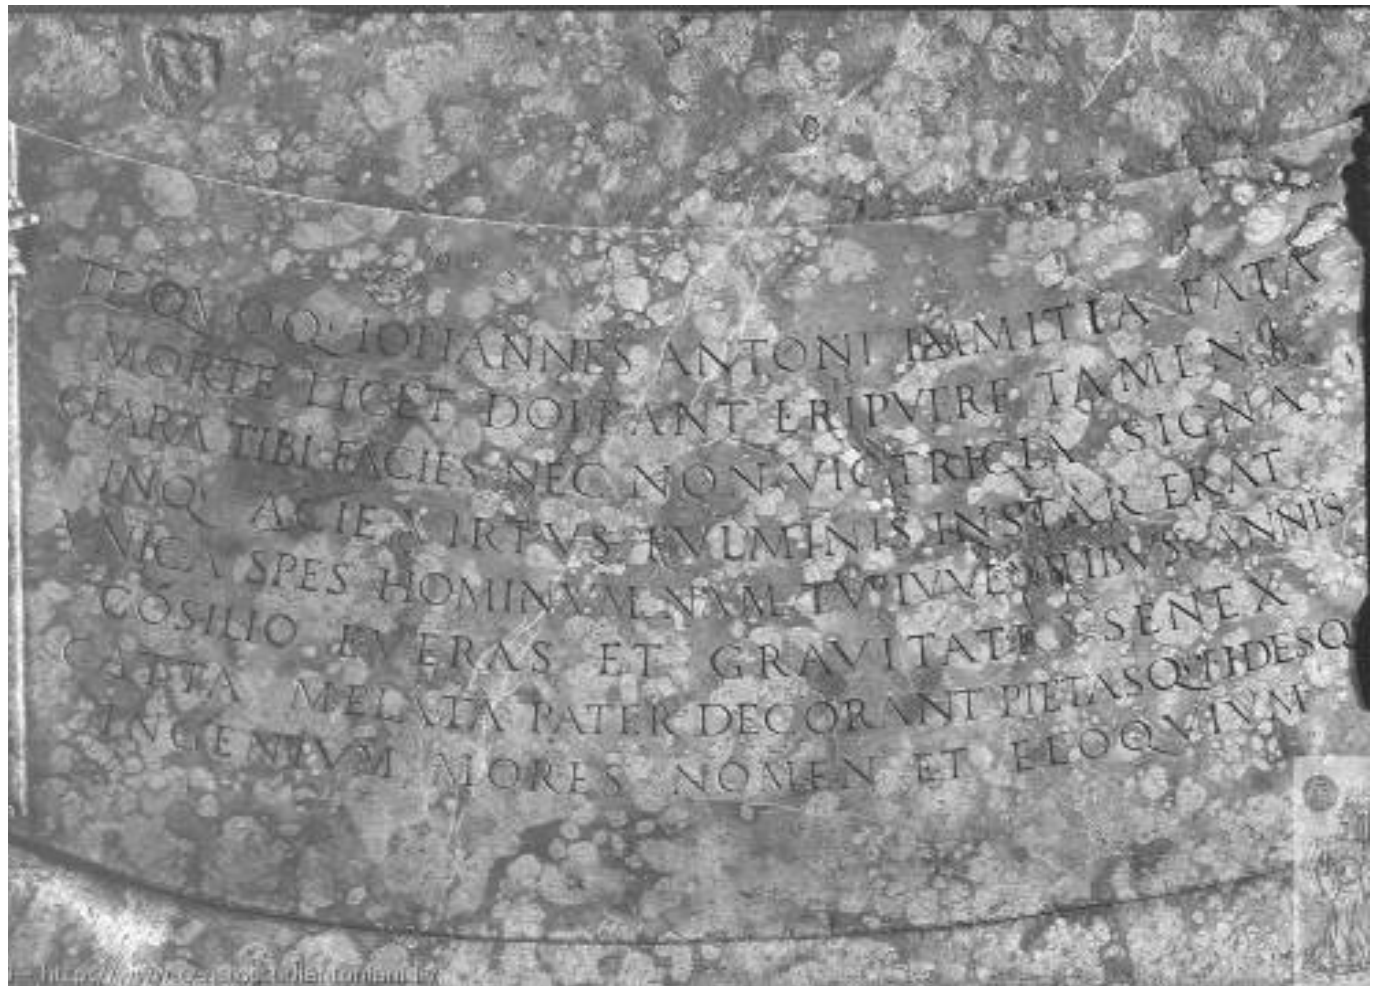 TE QVOQ' IOHANNES ANTONI IMMITIA FATA
MORTE LICET DOLEANT ERIPVIRE TAMEN
CLARA TIBI FACIES NEC NON VICTRICIA SIGNA
INQ' ACIE VIRTVS FVLMINIS INSTAR ERAT
VNICA SPES HOMINVM NAM TV IVVENIBVS ANNIS
COSILIO FVERAS ET GRAVITATE SENEX
CAPTA MELATA PATER DECORANT PIETASQ' FIDESQ
INGENIVM MORES NOMEN ET ELOQVIVM